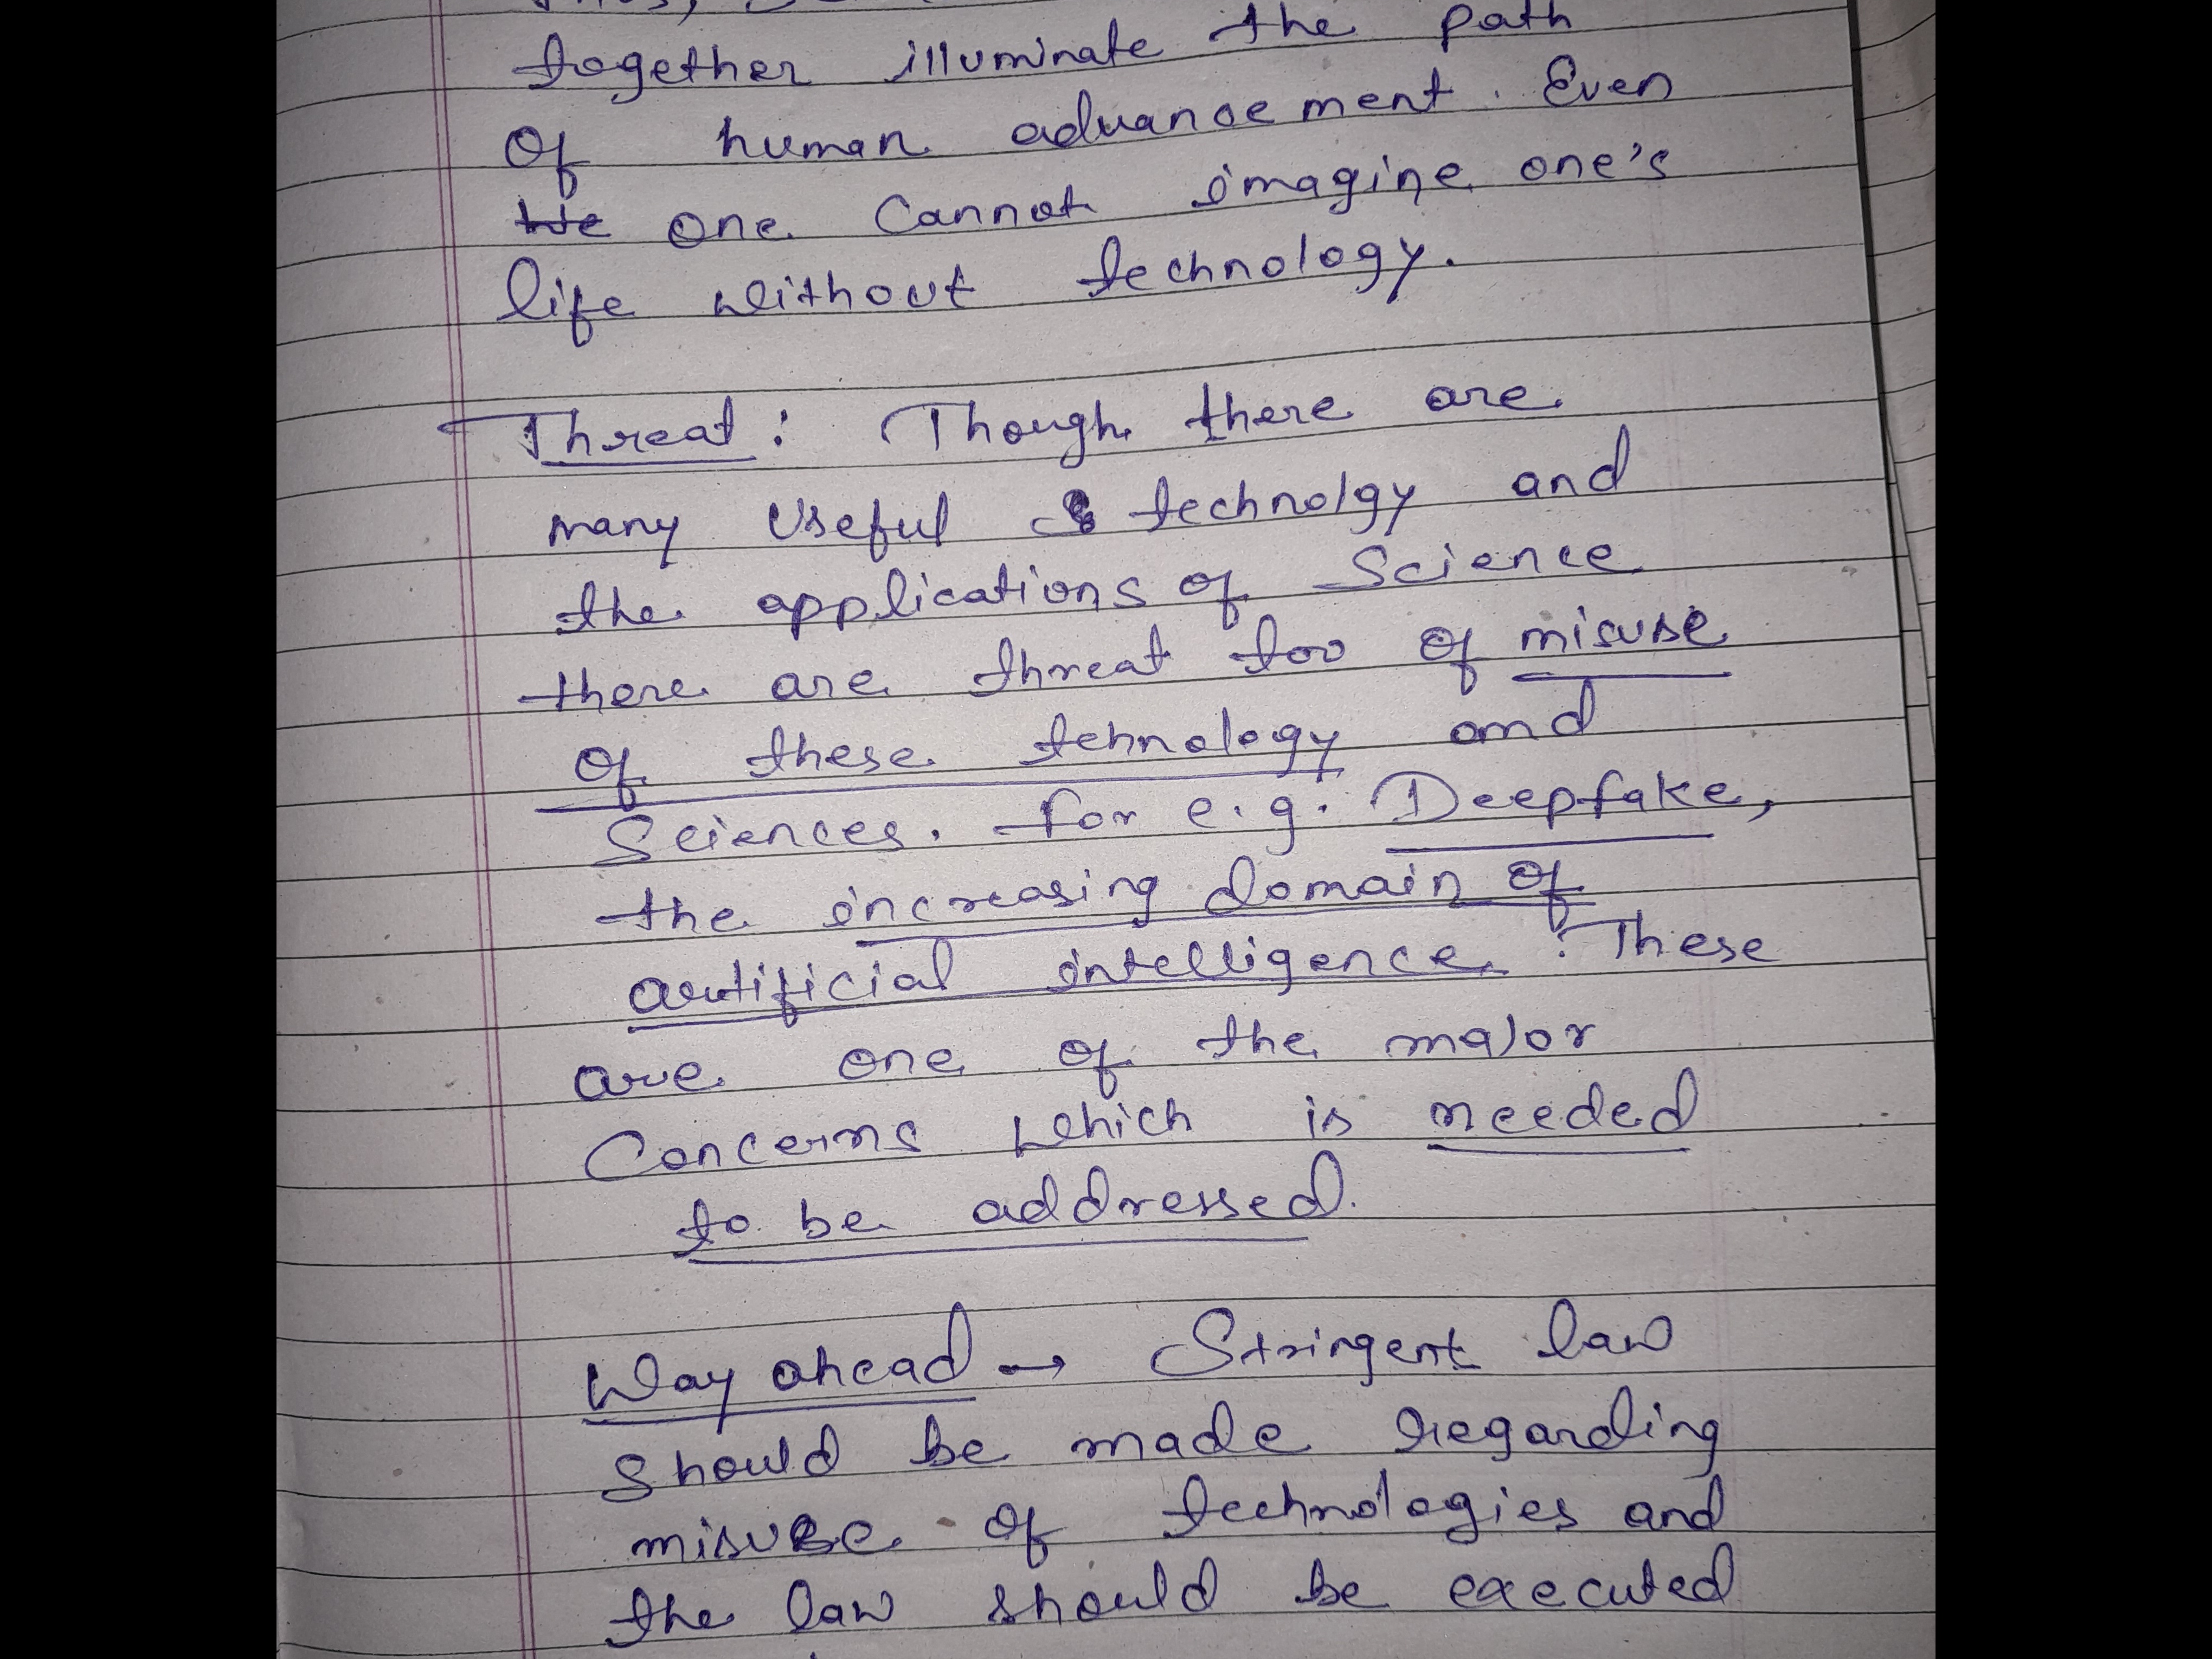 together illuminate the path
of human advancement. Even
one cannot imagine one's
life without technology.
Threat: Though there are
many useful technolgy and
the applications of Science
there are threat too of misuse
of these tehnology and
Sciences. for e.g. Deepfake,
the increasing domain of
artificial intelligence. These
are one of the major
Concerns which is needed
to be addressed.
Way ahead → Stringent law
should be made regarding
misuse of technologies and
the law should be executed